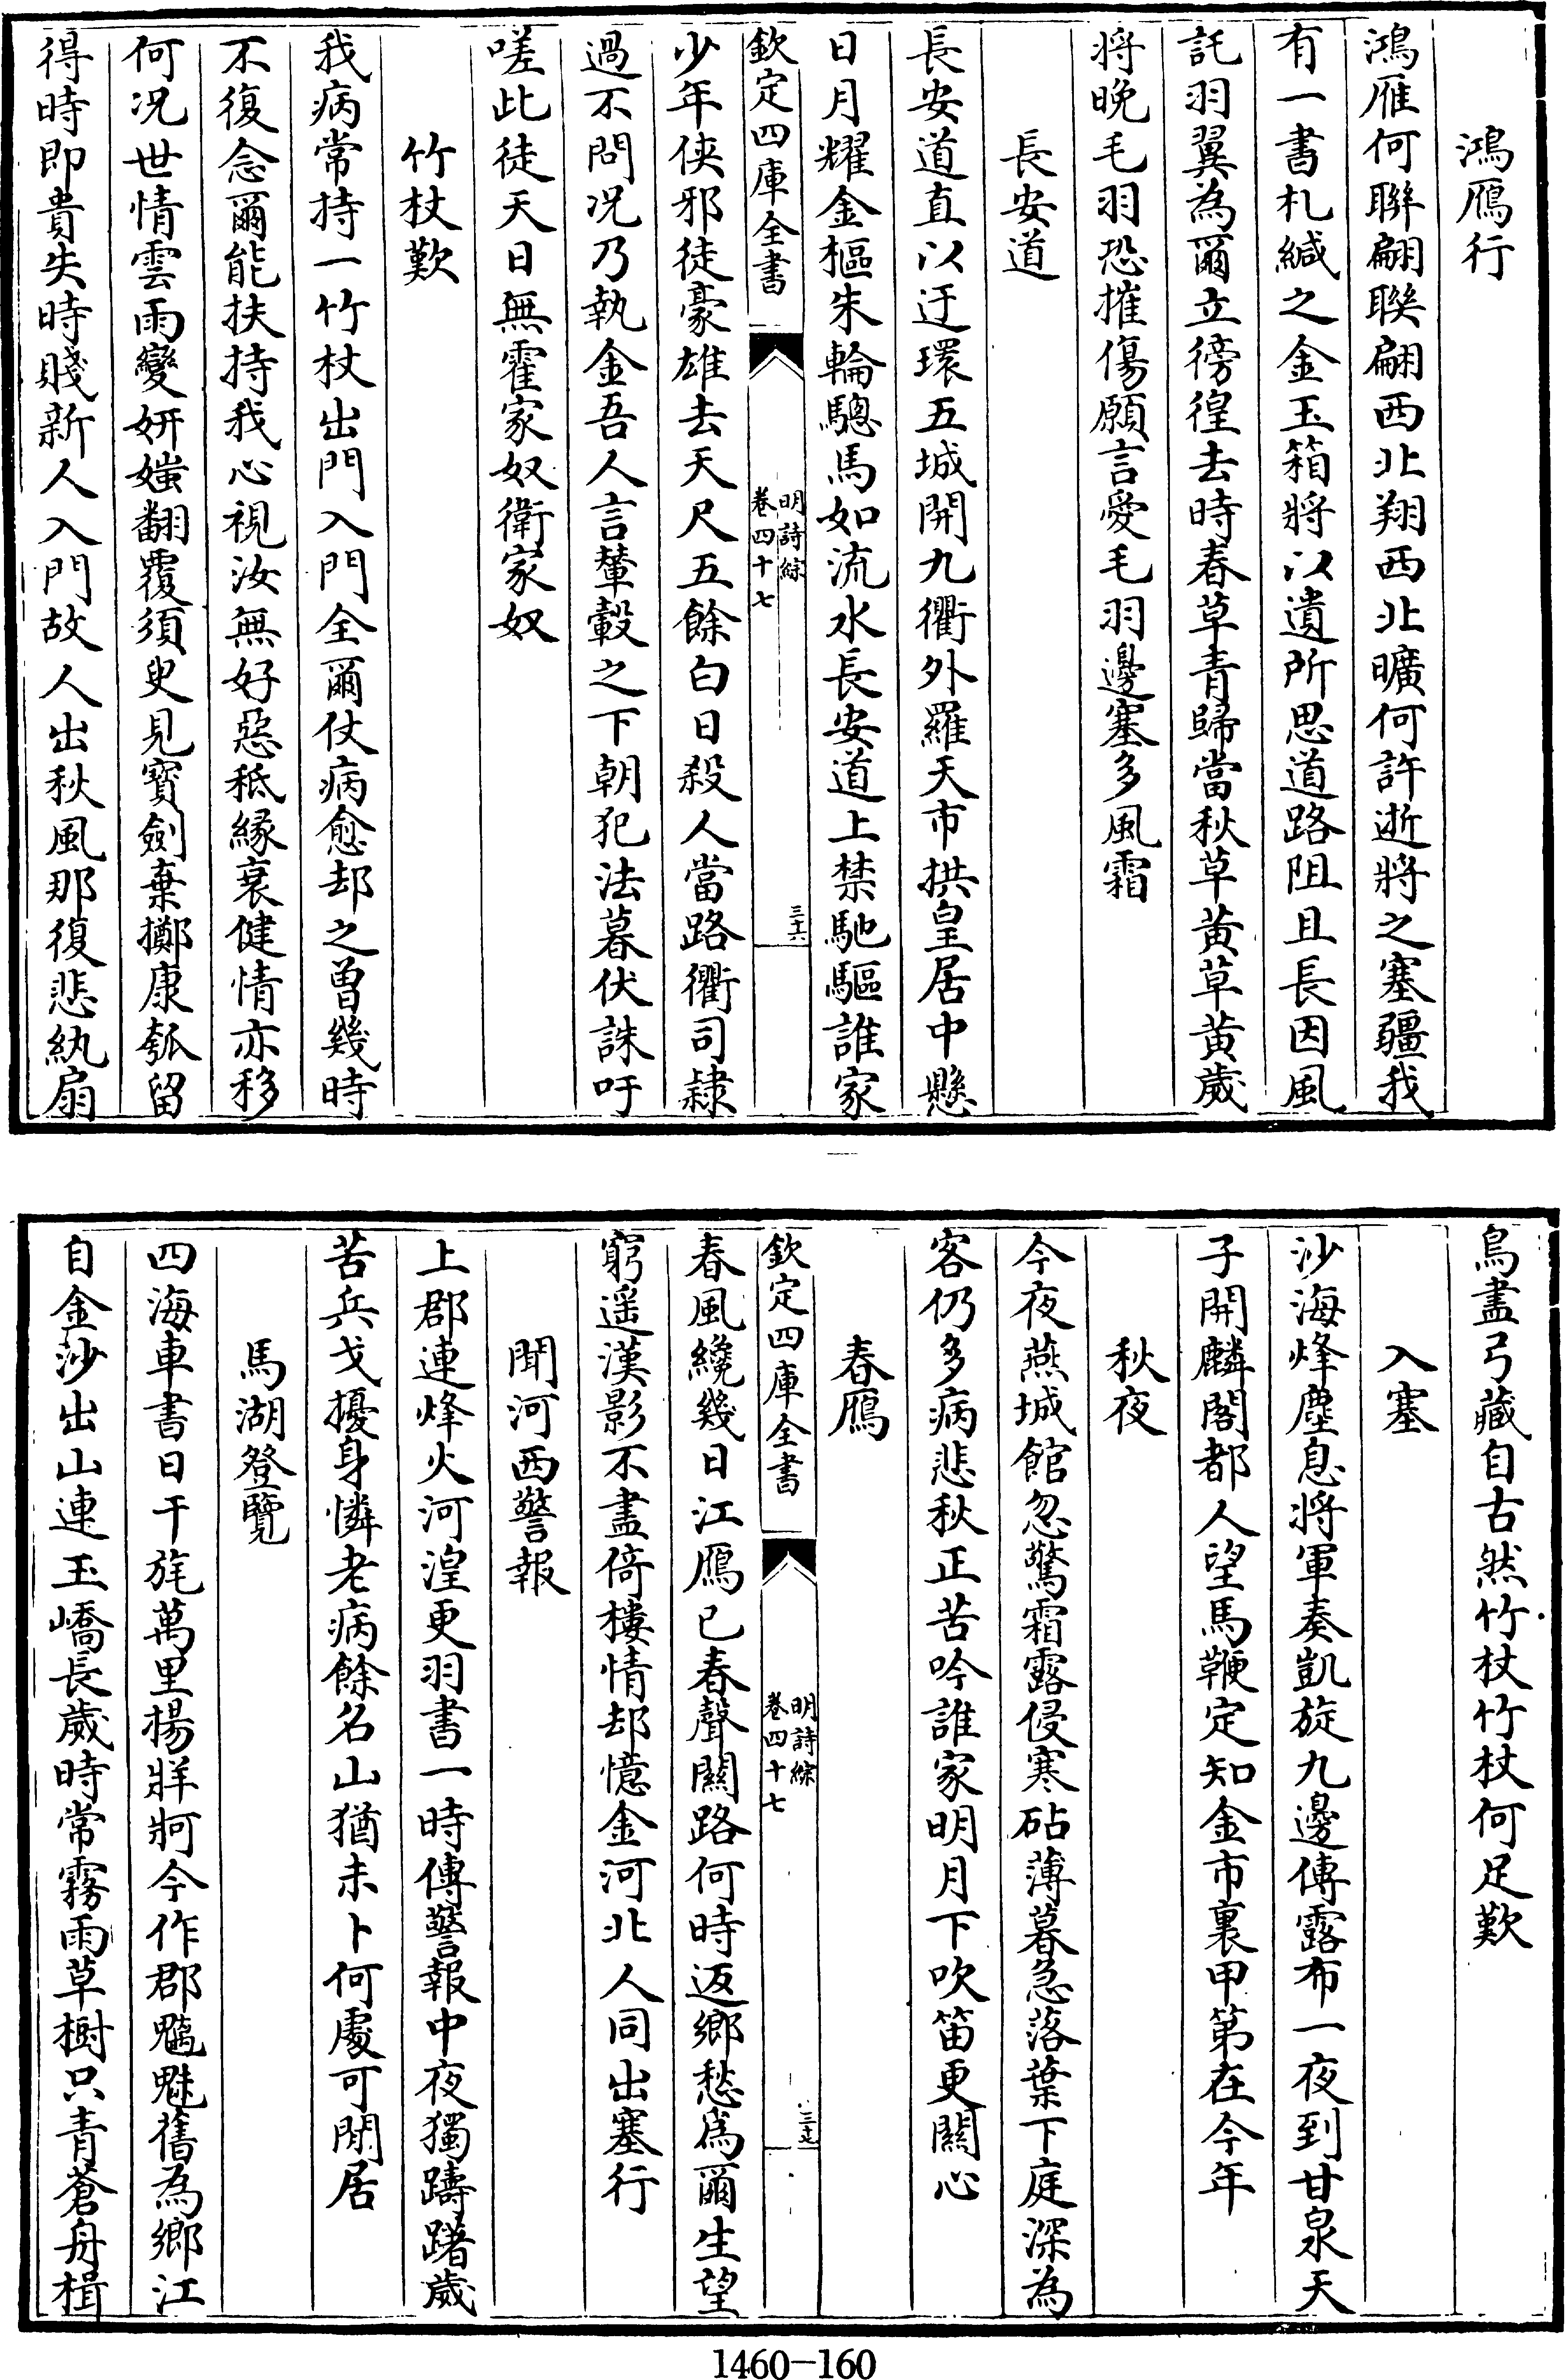 鴻鴈行
鴻雁何聯翩聯翩西北翔西北曠何許逝將之塞疆我
有一書札緘之金玉箱將以遺所思道路阻且長因風
託羽翼為爾立徬徨去時春草青歸當秋草黄草黄歲
将晚毛羽恐摧傷願言愛毛羽邊塞多風霜
長安道
長安道直以迂環五城開九衢外羅天市拱皇居中懸
日月耀金樞朱輪驄馬如流水長安道上禁馳驅誰家
欽定四庫全書
明詩綜
卷四十七
三十六
少年俠邪徒豪雄去天尺五餘白日殺人當路衢司隷
過不問况乃執金吾人言輦轂之下朝犯法暮伏誅吁
嗟此徒天日無霍家奴衛家奴
竹杖歎
我病常持一竹杖出門入門全爾仗病愈却之曾幾時
不復念爾能扶持我心視汝無好惡秪緣衰健情亦移
何况世情雲雨變妍媸翻覆須臾見寶劍棄擲康瓠留
得時即貴失時賤新人入門故人出秋風那復悲紈扇
鳥盡弓藏自古然竹杖竹杖何足歎
入塞
沙海烽塵息将軍奏凱旋九邊傳露布一夜到甘泉天
子開麟閣都人望馬鞭定知金市裏甲第在今年
秋夜
今夜燕城館忽驚霜露侵寒砧薄暮急落葉下庭深為
客仍多病悲秋正苦吟誰家明月下吹笛更關心
春鴈
欽定四庫全書
明詩綜
卷四十七
三十七
春風纔幾日江鴈已春聲關路何時返鄉愁為爾生望
窮遥漢影不盡倚樓情却憶金河北人同出塞行
聞河西警報
上郡連烽火河湟更羽書一時傳警報中夜獨躊躇歲
苦兵戈擾身憐老病餘名山猶未卜何處可閒居
馬湖登覽
四海車書日干旄萬里楊牂牁今作郡魑魅舊為鄉江
自金沙出山連玉嶠長歲時常霧雨草樹只青蒼舟楫
1460-160